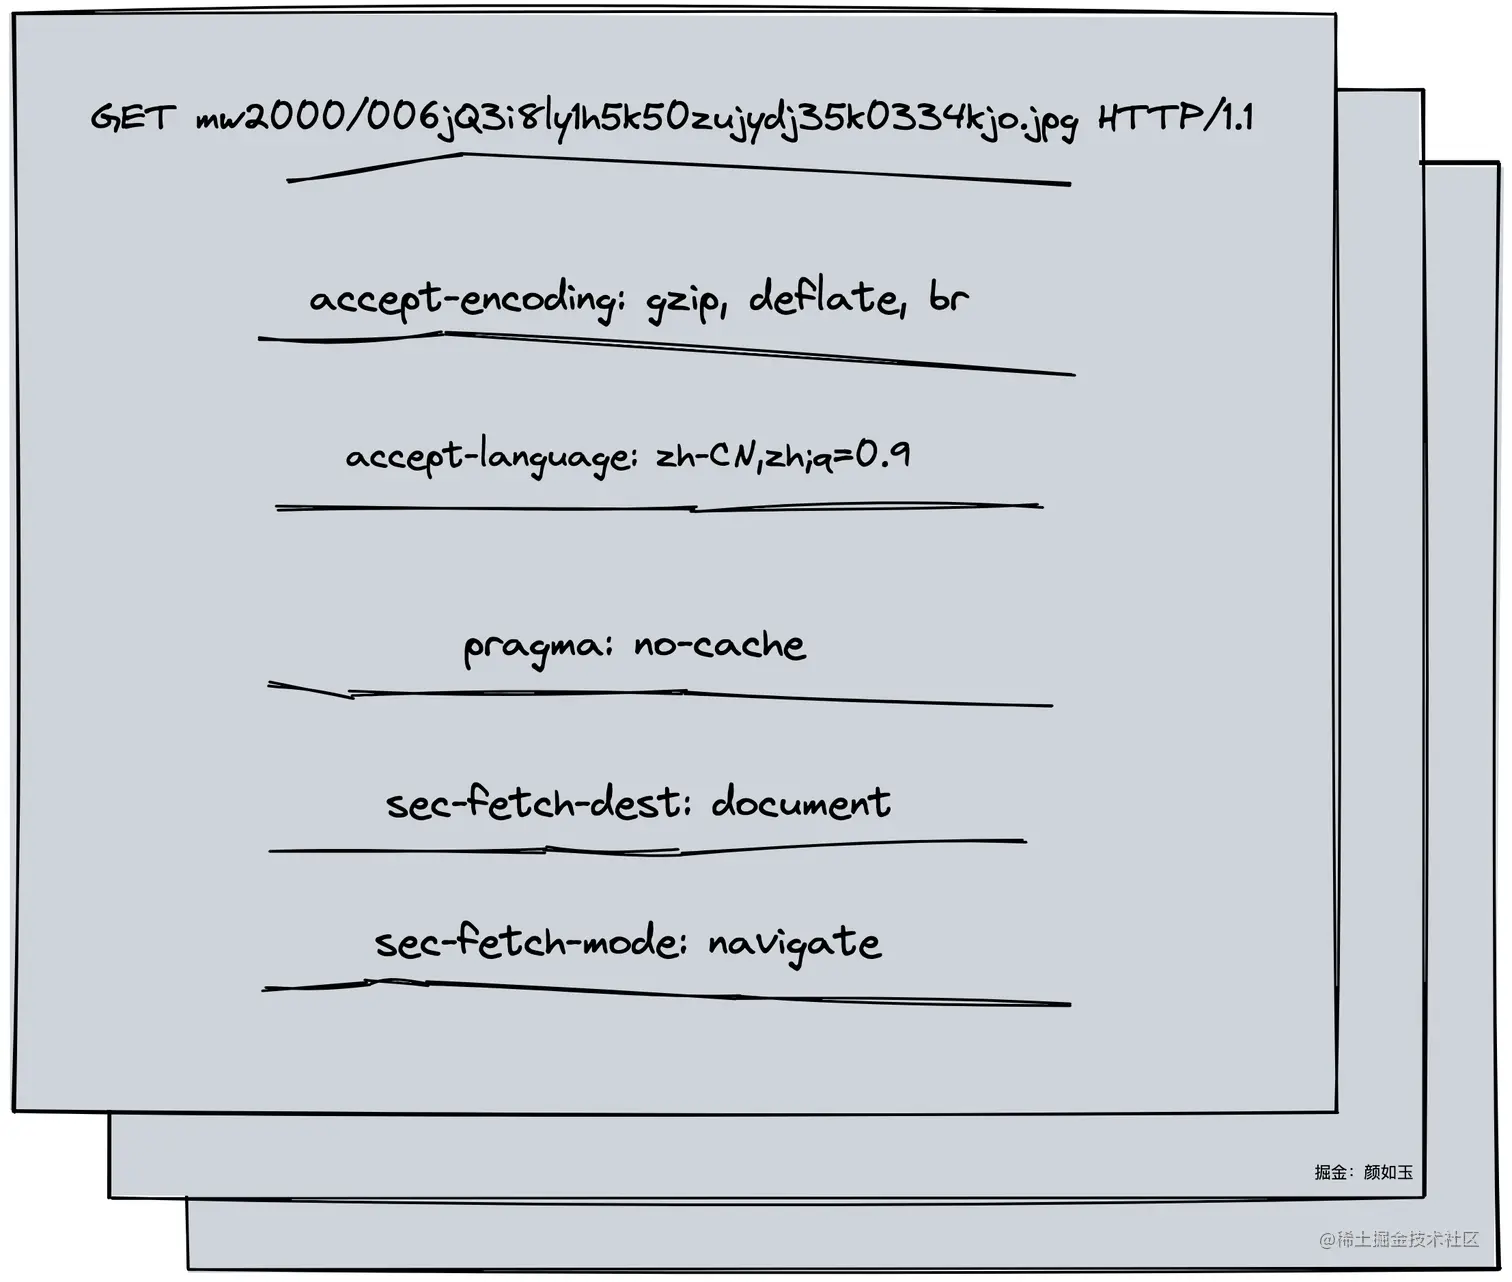 GET mw2000/006jQ3i8ly1h5k50zujydj35k0334kjo.jpg HTTP/1.1
accept-encoding: gzip, deflate, br
accept-language: zh-CN,zh;q=0.9
pragma: no-cache
sec-fetch-dest: document
sec-fetch-mode: navigate
掘金：颜如玉
@稀土掘金技术社区